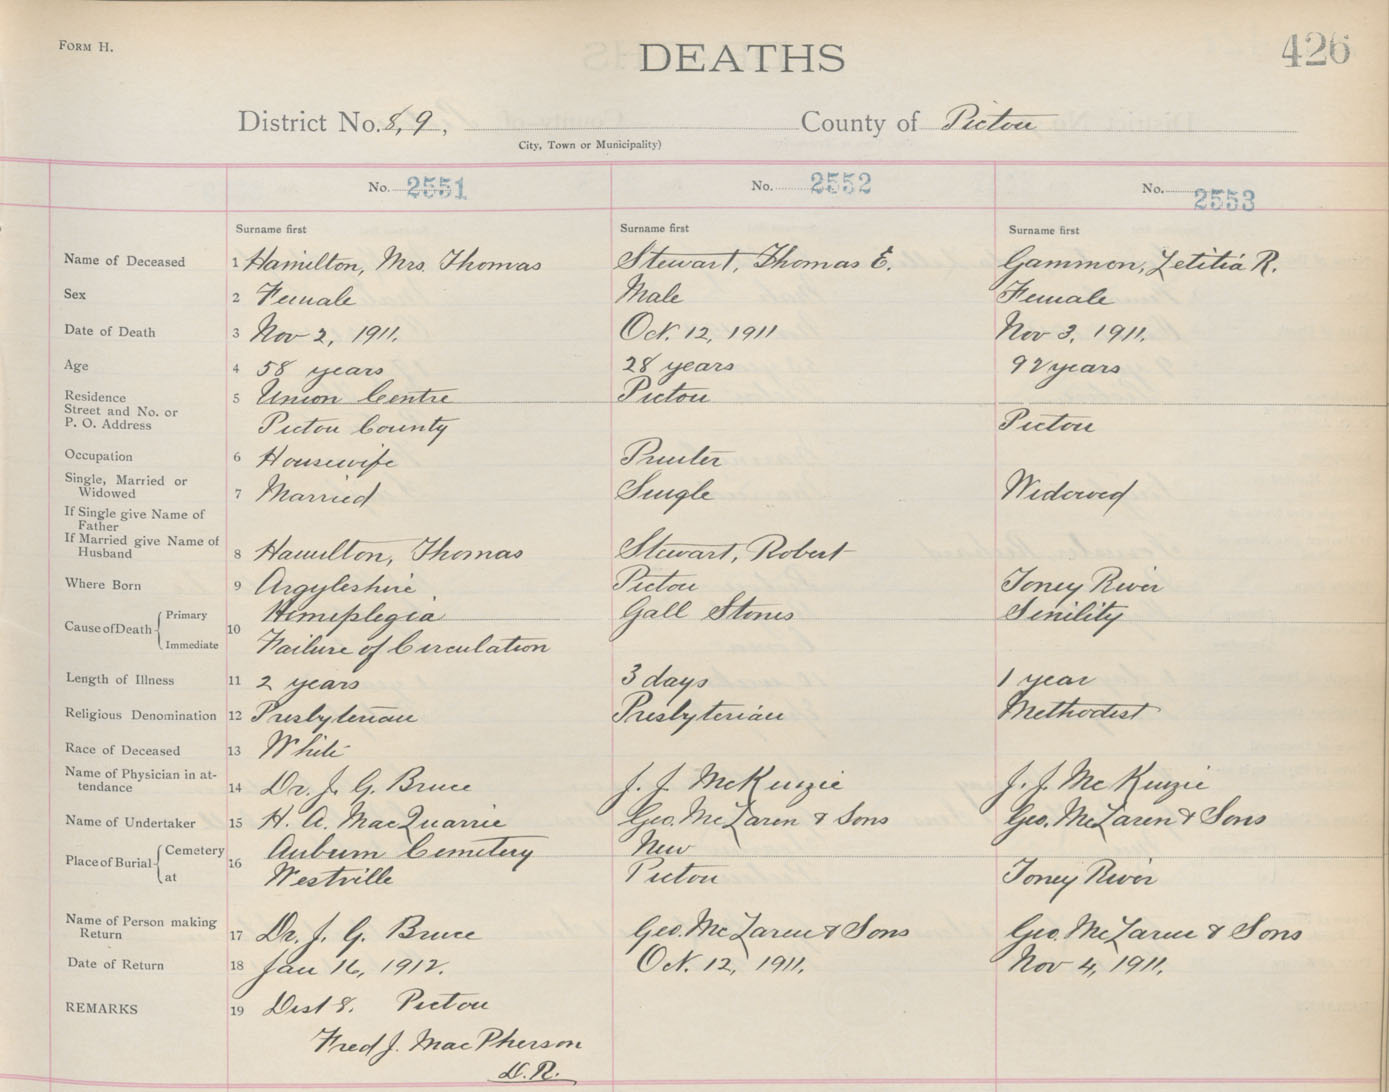 FORM H.
DEATHS
426
District No. 8, 9, County of Pictou
City, Town or Municipality)
No. 2551 No. 2552 No. 2553
Surname first Surname first Surname first
Name of Deceased 1 Hamilton, Mrs. Thomas Stewart, Thomas E. Gammon, Letitia R.
Sex 2 Female Male Female
Date of Death 3 Nov 2, 1911. Oct. 12, 1911 Nov 3, 1911.
Age 4 58 years 28 years 92 years
Residence 5 Union Centre Pictou
Street and No. or
P. O. Address Pictou County Pictou
Occupation 6 Housewife Printer
Single, Married or
Widowed 7 Married Single Widowed
If Single give Name of
Father
If Married give Name of
Husband 8 Hamilton, Thomas Stewart, Robert
Where Born 9 Argyleshire Pictou Toney River
Cause of Death Primary 10 Hemeplegia Gall Stones Senility
Immediate Failure of Circulation
Length of Illness 11 2 years 3 days 1 year
Religious Denomination 12 Presbyterian Presbyterian Methodist
Race of Deceased 13 White
Name of Physician in at-
tendance 14 Dr. J. G. Bruce J. J. McKenzie J. J. McKenzie
Name of Undertaker 15 H. A. MacQuarrie Geo. McLaren & Sons Geo. McLaren & Sons
Place of Burial Cemetery 16 Auburn Cemetery New
at Westville Pictou Toney River
Name of Person making
Return 17 Dr. J. G. Bruce Geo. McLaren & Sons Geo. McLaren & Sons
Date of Return 18 Jan 16, 1912. Oct. 12, 1911. Nov 4, 1911.
REMARKS 19 Dist 8. Pictou
Fred J. MacPherson
D.R.